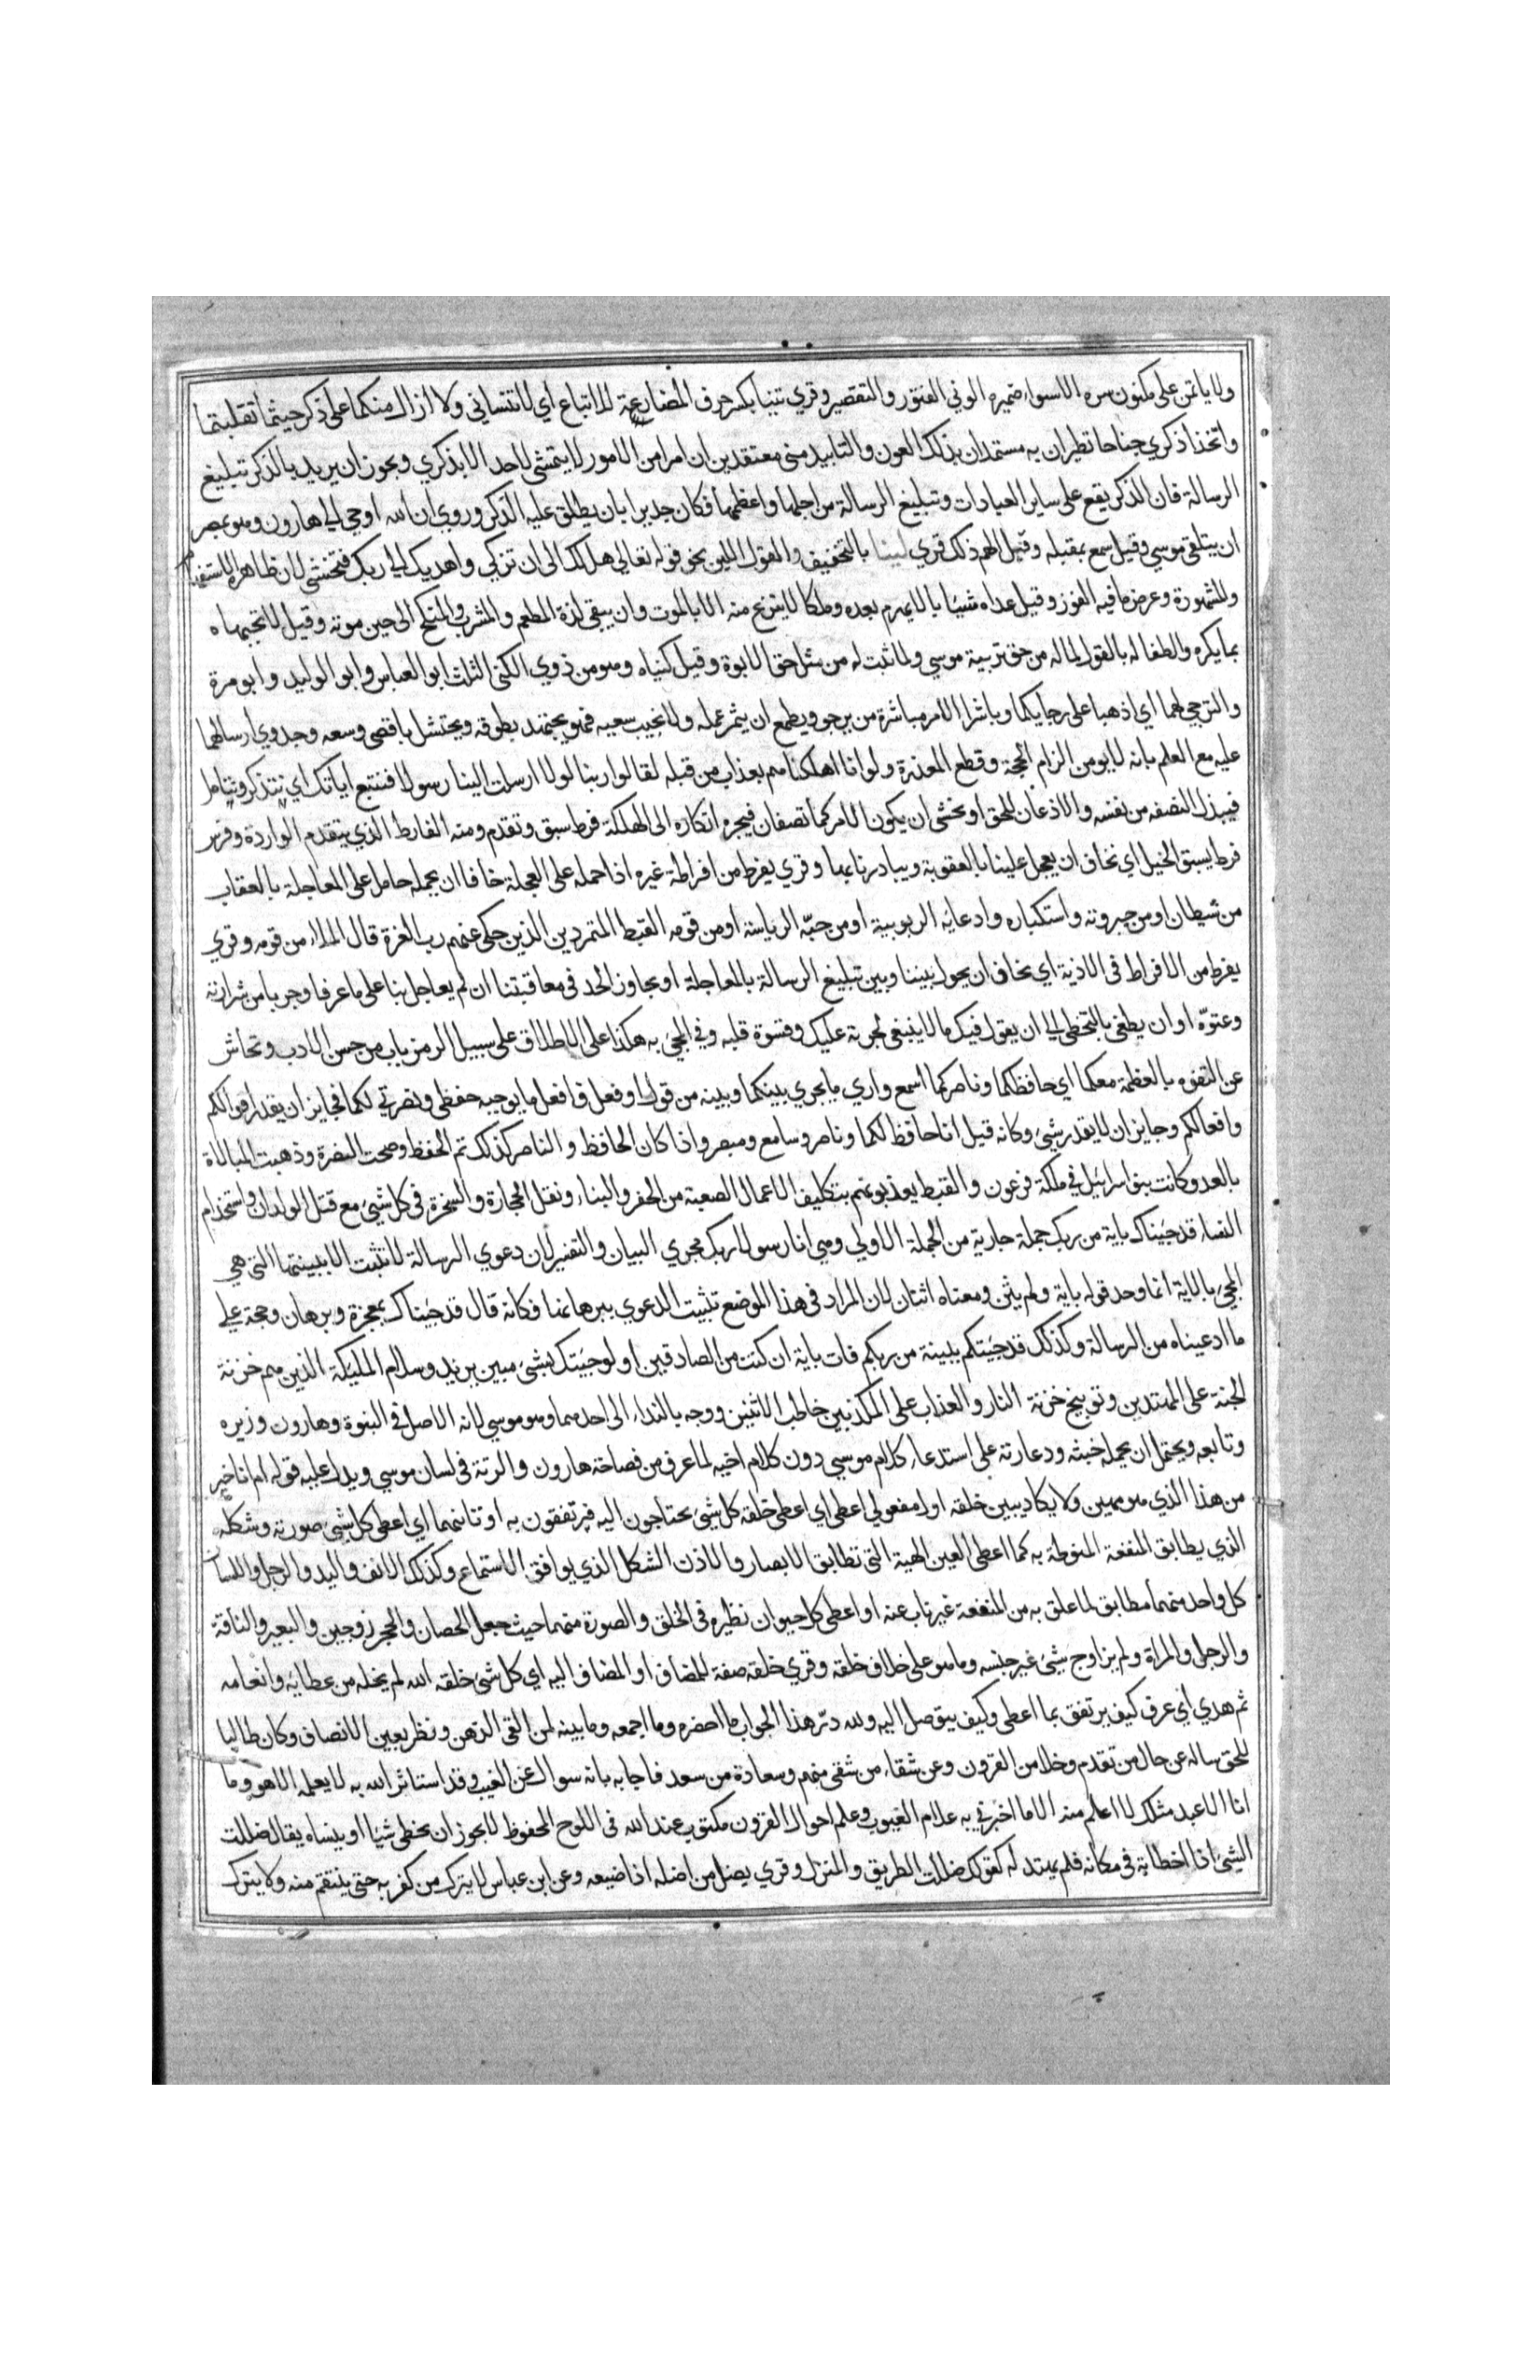 ولا ياتمن على مكنون سره الا سواء ضميره الوني الفتور والتقصير وقري تنيا بكسر حرف المضارعة للاتباع اي لا تنسياني ولا ازال منكما على ذكر حيثما تقلبتما
واتخذا ذكري جناحا تطيران به مستمدان بذلك العون والتاييد مني معتقدين ان امرا من الامور لا يتمشي لاحد الا بذكري ويجوز ان يريد بالذكر تبليغ
الرسالة فان الذكر يقع على ساير العبادات وتبليغ الرسالة من اجلها واعظمها فكان جديرا بان يطلق عليه الذكر وروي ان الله اوحي الي هارون وهو بمصر
ان يتلقي موسي وقيل سمع بمقبله وقيل الهم ذلك قري لينا بالتخفيف والقول اللين نحو قوله تعالي هل لك الى ان تزكي واهديك الي ربك فتخشي لان ظاهره الاستفهام
والمشورة وعرض ما فيه الفوز وقيل عداه شبابا لا يهرم بعده وملكا لا ينزع منه الا بالموت وان يبقي لذة المطعم والمشرب والمنكح الى حين موته وقيل لا تجبهاه
بما يكره والطفا له بالقول لما له من حق تربية موسي ولما ثبت له من مثل حق الابوة وقيل كنياه وهو من ذوي الكني الثلث ابو العباس وابو الوليد وابو مرة
والترجي لهما اي اذهبا على رجايكما وباشرا الامر مباشرة من يرجو ويطمع ان يثمر عمله ولا يخيب سعيه فهو يجتهد بطوقه ويحتشد باقصي وسعه وجدوي ارسالهما
عليه مع العلم بانه لا يومن الزام الحجة وقطع المعذرة ولو انا اهلكناهم بعذاب من قبله لقالوا ربنا لولا ارسلت الينا رسولا فنتبع اياتك اي يتذكر ويتامل
فيبذل النصفه من نفسه والاذعان للحق او يخشي ان يكون الامر كما تصفان فيجره انكاره الى الهلكة فرط سبق وتقدم ومنه الفارط الذي يتقدم الواردة وفرس
فرط يسبق الخيل اي نخاف ان يعجل علينا بالعقوبة ويبادرنا بها وقري يفرط من افراطه غيره اذا حمله على العجلة خافا ان يحمله حامل على المعاجلة بالعقاب
من شيطان او من جبروته واستكباره وادعايه الربوبية او من حبّه الرياسة او من قومه القبط المتمردين الذين حكي عنهم رب العزة قال الملا من قومه وقري
يفرط من الافراط في الاذية اي نخاف ان يحول بيننا وبين تبليغ الرسالة بالمعاجلة او يجاوز الحد في معاقبتنا ان لم يعاجل بنا على ما عرفا وجربا من شرارته
وعتوّه او ان يطغي بالتخطي الي ان يقول فيك ما لا ينبغي لجرءته عليك وقسوة قلبه وفي المجئ به هكذا على الاطلاق على سبيل الرمز باب من حسن الادب وتحاش
عن التفوه بالعظمة معكما اي حافظكما وناصركما اسمع واري ما يجري بينكما وبينه من قول او فعل فافعل ما يوجبه حفظي ونصرتي لكما فجايز ان يقدر اقوالكم
وافعالكم وجايز ان لا يقدر شئ وكانه قيل انا حافظ لكما وناصر وسامع ومبصر واذا كان الحافظ والناصر كذلك تم الحفظ وصحت النصرة وذهبت المبالاة
بالعدو وكانت بنو اسرائيل في ملكة فرعون والقبط يعذبونهم بتكليف الاعمال الصعبة من الحفر والبناء ونقل الحجارة والسخرة في كل شئ مع قتل الولدان واستخدام
النساء قد جيناك باية من ربك جملة جارية من الجملة الاولي وهي انا رسولا ربك مجري البيان والتفسير لان دعوي الرسالة لا تثبت الا ببينتها التي هي
المجئ بالاية انما وحد قوله باية ولم يثن ومعناه اثنان لان المراد في هذا الموضع تثبيت الدعوي ببرهانها فكانه قال قد جيناك بمعجزة وبرهان وحجة علي
ما ادعيناه من الرسالة وكذلك قد جيتكم ببينة من ربكم فات باية ان كنت من الصادقين اولو جيتك بشئ مبين يريد وسلام الملئكة الذين هم خزنة
الجنة على المهتدين وتوبيخ خزنة النار والعذاب على المكذبين خاطب الاثنين ووجه بالنداء الى احدهما وهو موسي لانه الاصل في النبوة وهارون وزيره
وتابعه ويحتمل ان يحمله خبثه ودعارته على استدعاء كلام موسي دون كلام اخيه لما عرف من فصاحة هارون والرتة في لسان موسي ويدل عليه قوله ام انا خير
من هذا الذي هو مهين ولا يكاد يبين خلقه اول مفعولي اعطي اي اعطي خلقه كل شئ يحتاجون اليه فيرتفقون به او ثانيهما اي اعطي كل شئ صورته وشكله
الذي يطابق المنفعة المنوطة به كما اعطي العين الهية التي تطابق الابصار والاذن الشكل الذي يوافق الاستماع وكذلك الانف واليد والرجل واللسان
كل واحد منهما مطابق لما علق به من المنفعة غير ناب عنه او اعطي كل حيوان نظيره في الخلق والصورة منهما حيث جعل الحصان والحجر زوجين والبعير والناقة
والرجل والمراة ولم يزاوج شئ غير جنسه وما هو على خلاف خلقه وقري خلقه صفة للمضاف او المضاف اليه اي كل شئ خلقه الله لم يخله من عطايه وانعامه
ثم هدي اي عرف كيف يرتفق بما اعطي وكيف يتوصل اليه ولله درّ هذا الجواب ما احضره وما اجمعه وما بينه لمن القي الذهن ونظر بعين الانصاف وكان طالبا
للحق ساله عن حال من تقدم وخلا من القرون وعن شقاء من شقي منهم وسعادة من سعد فاجابه بانه سوال عن الغيب وقد استاثر الله به لا يعلمه الا هو وما
انا الا عبد مثلك لا اعلم منه الا ما اخبرني به علام الغيوب وعلم احوال القرون مكتوب عند الله في اللوح المحفوظ لا يجوز ان يخطي شيا او ينساه يقال ضللت
الشئ اذا اخطاته في مكانه فلم يهتد له كقولك ضللت الطريق والمنزل وقري يضل من اضله اذا ضيعه وعن ابن عباس لا يترك من كفر به حتي ينتقم منه ولا يترك